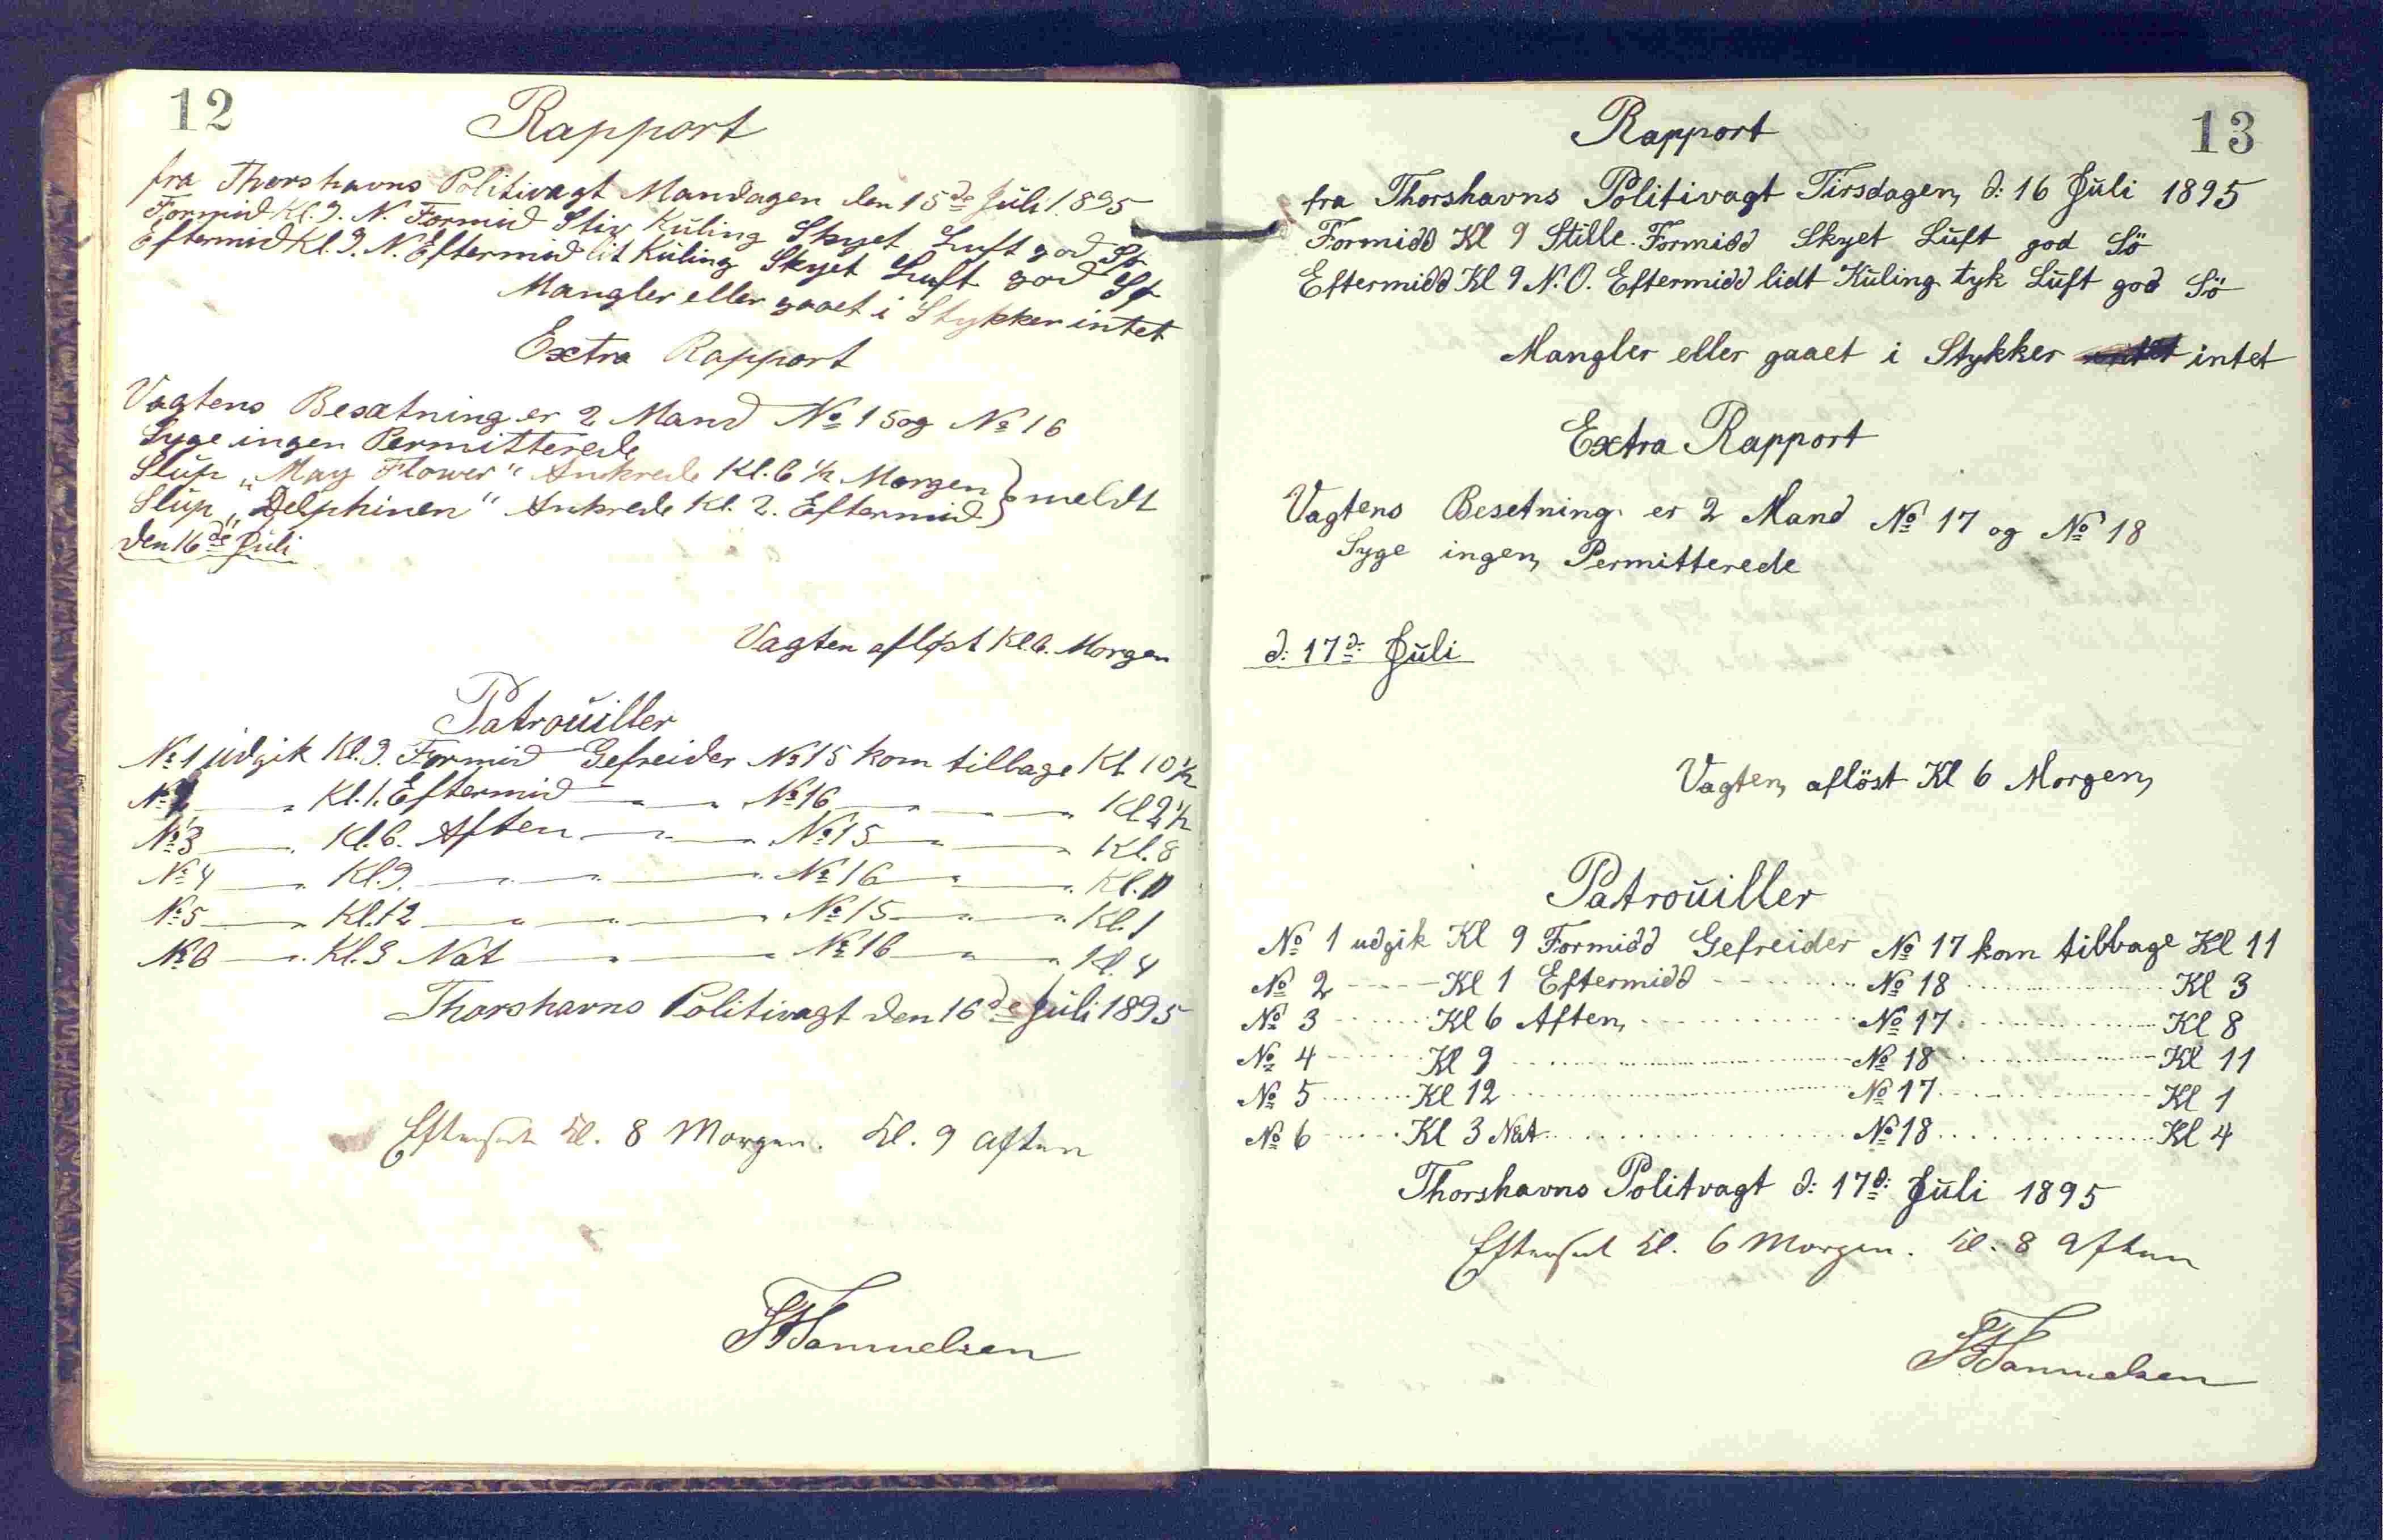 12
Rapport
fra Thorshavns Politivagt Mandagen den 15de Juli 1895
Formid Kl. 9. N. Formid Stiv Kuling Skyet Luft god Sø
Eftermid Kl. 9. N. Eftermid lit Kuling Skyet Luft god Sø
Mangler eller gaaet i Stykker intet
Extra Rapport
Vagtens Besætning er 2 Mand No 15 og No 16
Syge ingen Permitterede
Slup „May Flower" Ankrede Kl. 6 1/2 Morgen } meldt
Slup „Delphinen" Ankrede Kl. 2. Eftermid
den 16de Juli
Vagten afløst Kl. 6. Morgen
Patrouiller
No 1 udgik Kl. 9. Formid Gefreider No 15 kom tilbage Kl 10 1/2
No 2 — " Kl. 1. Eftermid — " — " No 16 — " — " Kl 2 1/2
No 3 — " Kl. 6. Aften — " — " No 15 — " — " Kl. 8
No 4 — " Kl. 9. — " — " — " No 16 — " — " Kl. 11
No 5 — " Kl. 12 — " — " — " No 15 — " — " Kl. 1
No 6 — " Kl. 3 Nat — " — " No 16 — " — " Kl. 4
Thorshavns Politivagt den 16de Juli 1895
Efterset Kl. 8 Morgen. Kl. 9 Aften
Samuelsen
13
Rapport
fra Thorshavns Politivagt Tirsdagen, d: 16 Juli 1895
Formidd Kl 9 Stille. Formidd Skyet Luft god Sö
Eftermidd Kl 9 N.O. Eftermidd lidt Kuling tyk Luft god Sö
Mangler eller gaaet i Stykker intet
Extra Rapport
Vagtens Besetning er 2 Mand No 17 og No 18
Syge ingen, Permitterede
d: 17d: Juli
Vagten, aflöst Kl 6 Morgen,
Patrouiller
No 1 udgik Kl 9 Formidd Gefreider No 17 kom tilbage Kl 11
No 2 ----- Kl 1 Eftermidd ........ No 18 ........ Kl 3
No 3 ........ Kl 6 Aften, ........ No 17 ........ Kl 8
No 4 ........ Kl 9 ........ No 18 ........ Kl 11
No 5 ........ Kl 12 ........ No 17 ........ Kl 1
No 6 ........ Kl 3 Nat ........ No 18 ........ Kl 4
Thorshavns Politvagt d: 17d: Juli 1895
Efterset Kl. 6 Morgen. Kl. 8 Aften
Samuelsen